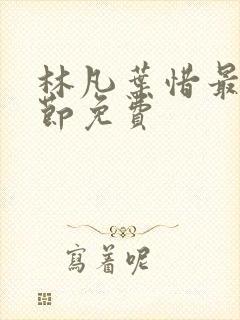 林凡葉惜最
節免費
寫着呢